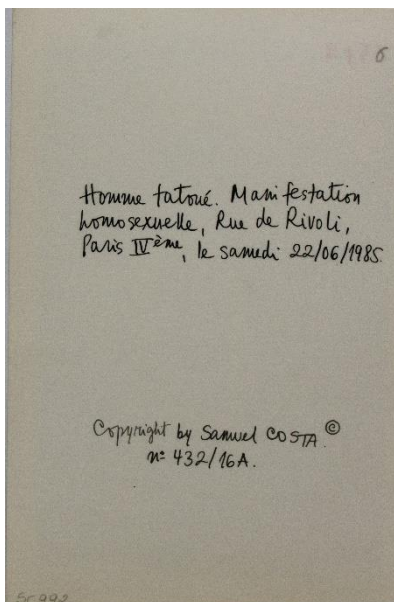 6
Homme tatoué. Manifestation
homosexuelle, Rue de Rivoli,
Paris IVème, le samedi 22/06/1985.
Copyright by Samuel COSTA. ©
nº 432/16A.